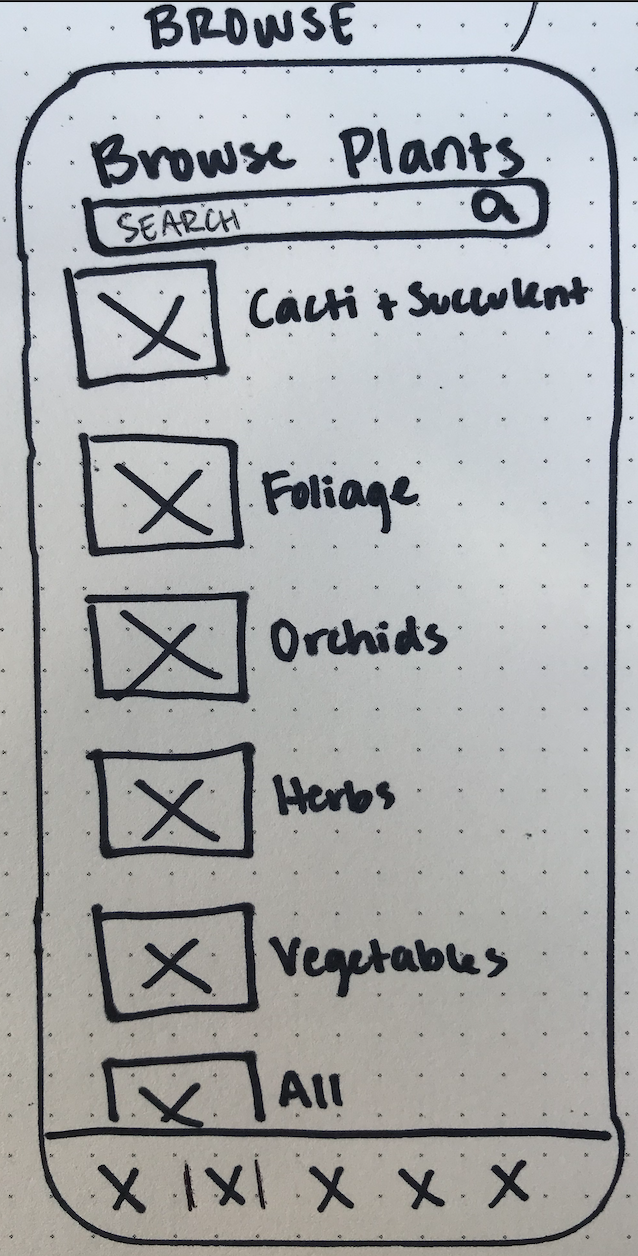 BROWSE
Browse Plants
SEARCH
Cacti + Succulent
Foliage
Orchids
Herbs
Vegetables
All